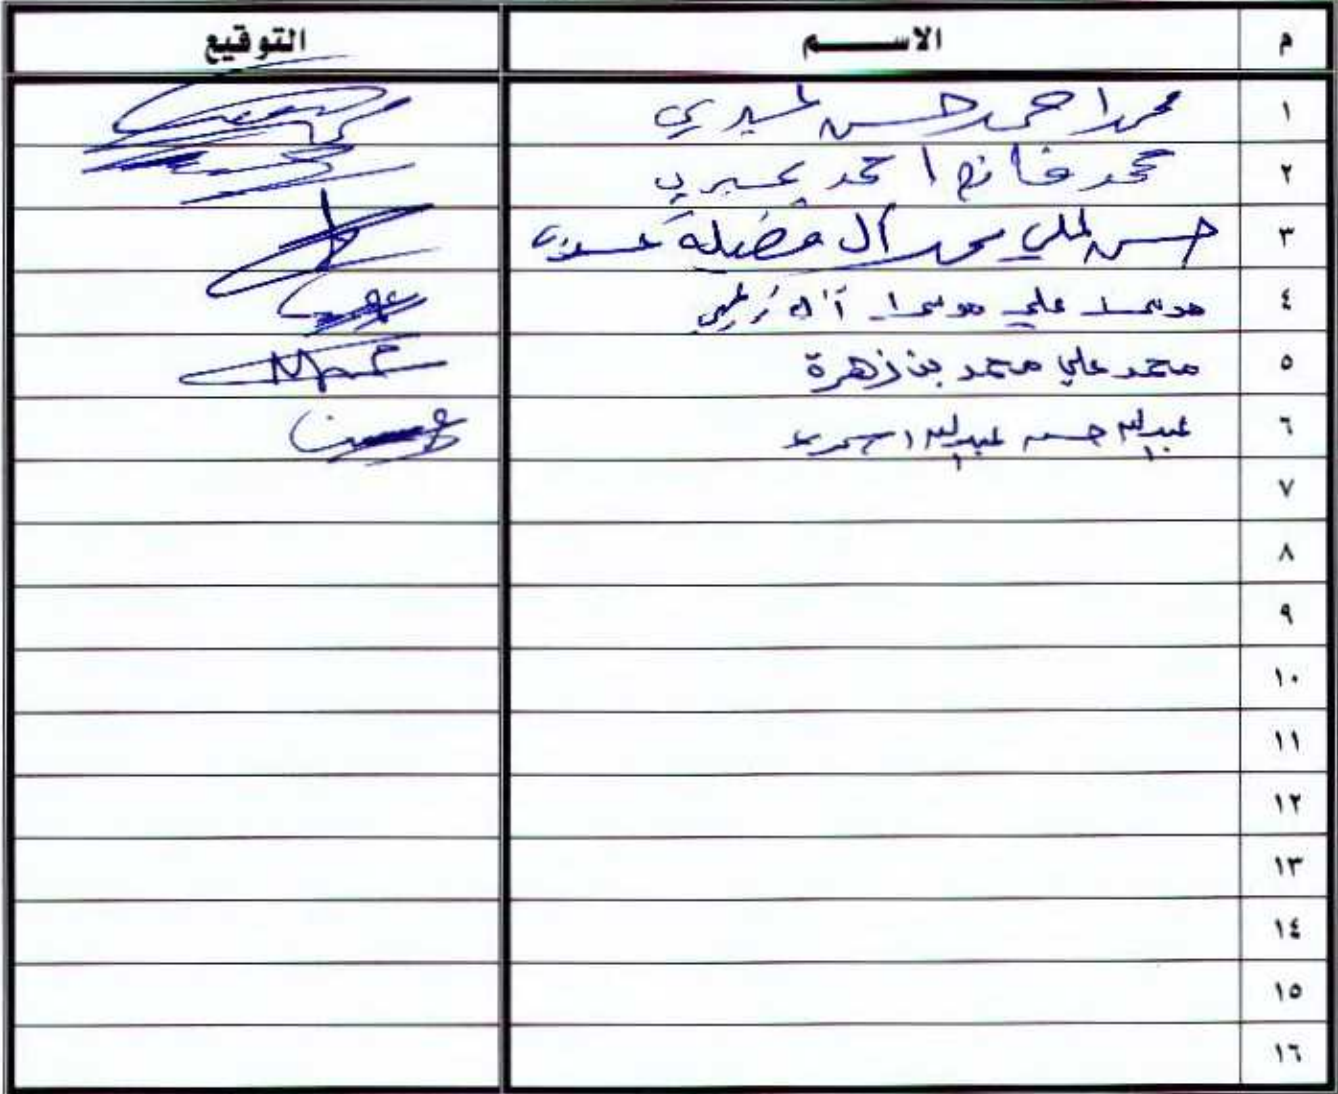 م الاســـــم التوقيع
١ محمد احمد حسن عسيري
٢ محمد فائع احمد عسيري
٣ حسن علي محمد آل فضيله عسيري
٤ موسى علي موسى آل
٥ محمد علي محمد بن زهرة
٦ عبدالله حسن عبدالله
٧
٨
٩
١٠
١١
١٢
١٣
١٤
١٥
١٦